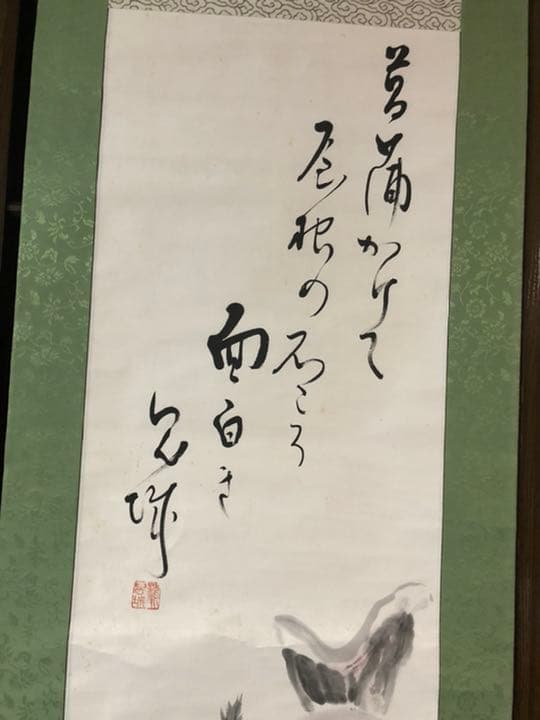 菖蒲かけて
屋根の石ころ
面白き
鬼城